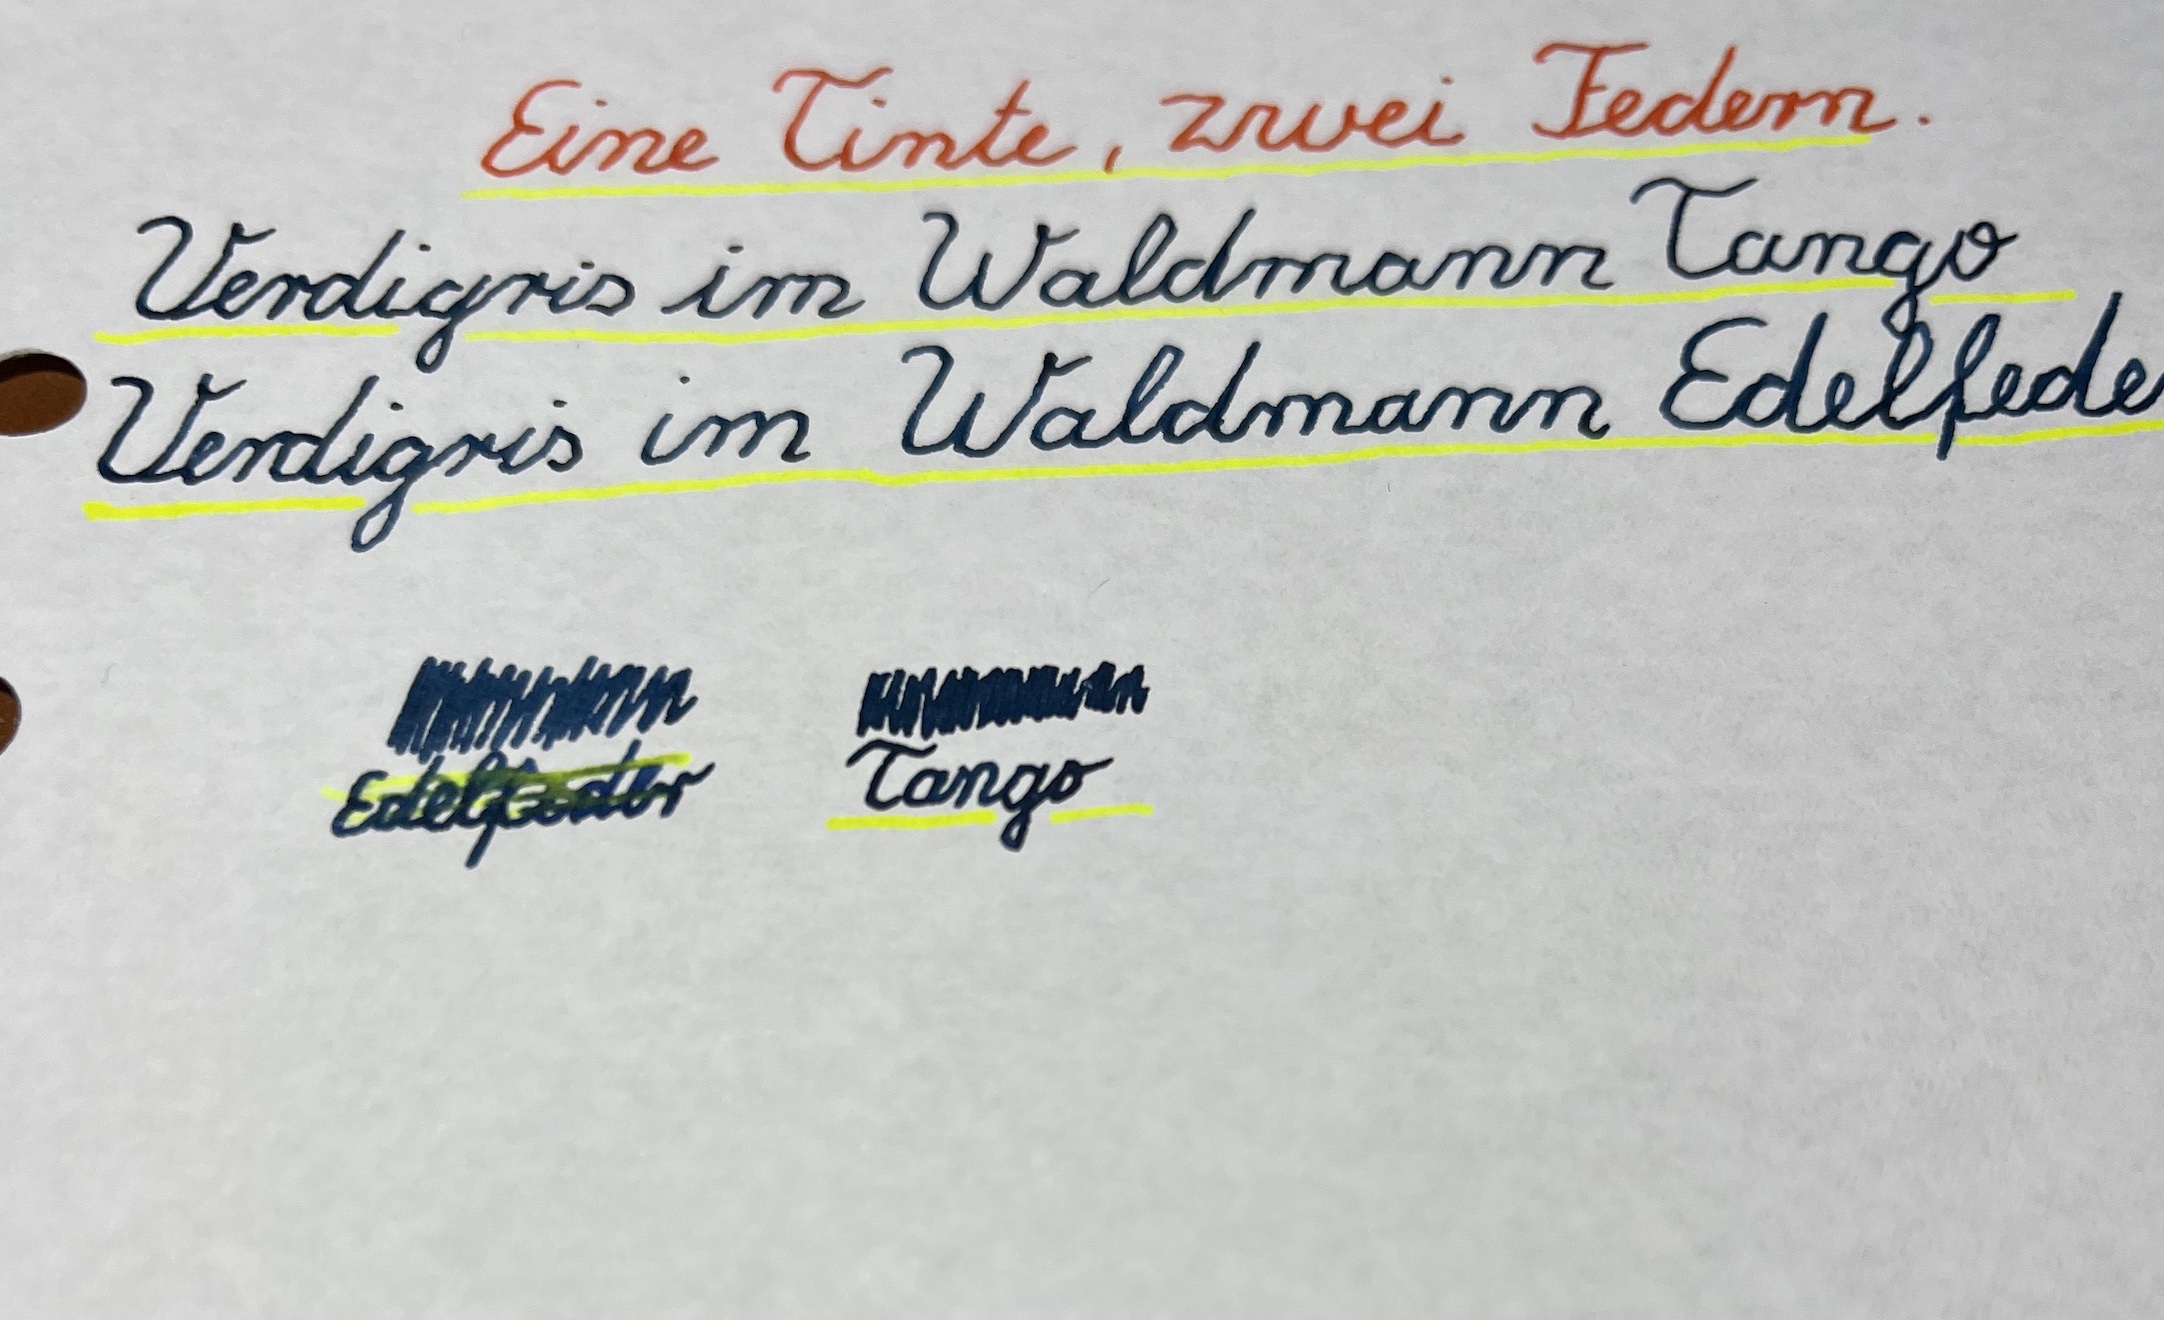 Eine Tinte, zwei Federn.
Verdigris im Waldmann Tango
Verdigris im Waldmann Edelfede
Edelfeder Tango